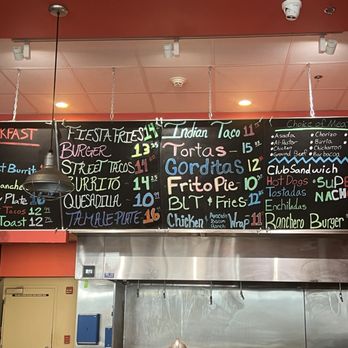 KFAST
Burrit
anchero
Plate 16
Tacos 12
Toast 12
FIESTA FRIES 14
BURGER 13.35
STREET TACOS 14
BURRITO 14
QUESADILLA 10
TAMALE PLATE 16
Indian Taco 11
Tortas - 15
Gorditas 12
Frito Pie 10
BLT & Fries 12
Chicken Avocado Bacon Ranch Wrap 11
Choice of Meat
Asada Chorizo
Al Pastor Barbac
Chicken Chicharron
Ground Beef
Club Sandwich
Hot Dogs
Tostadas
Enchiladas
NACH
Ranchero Burger